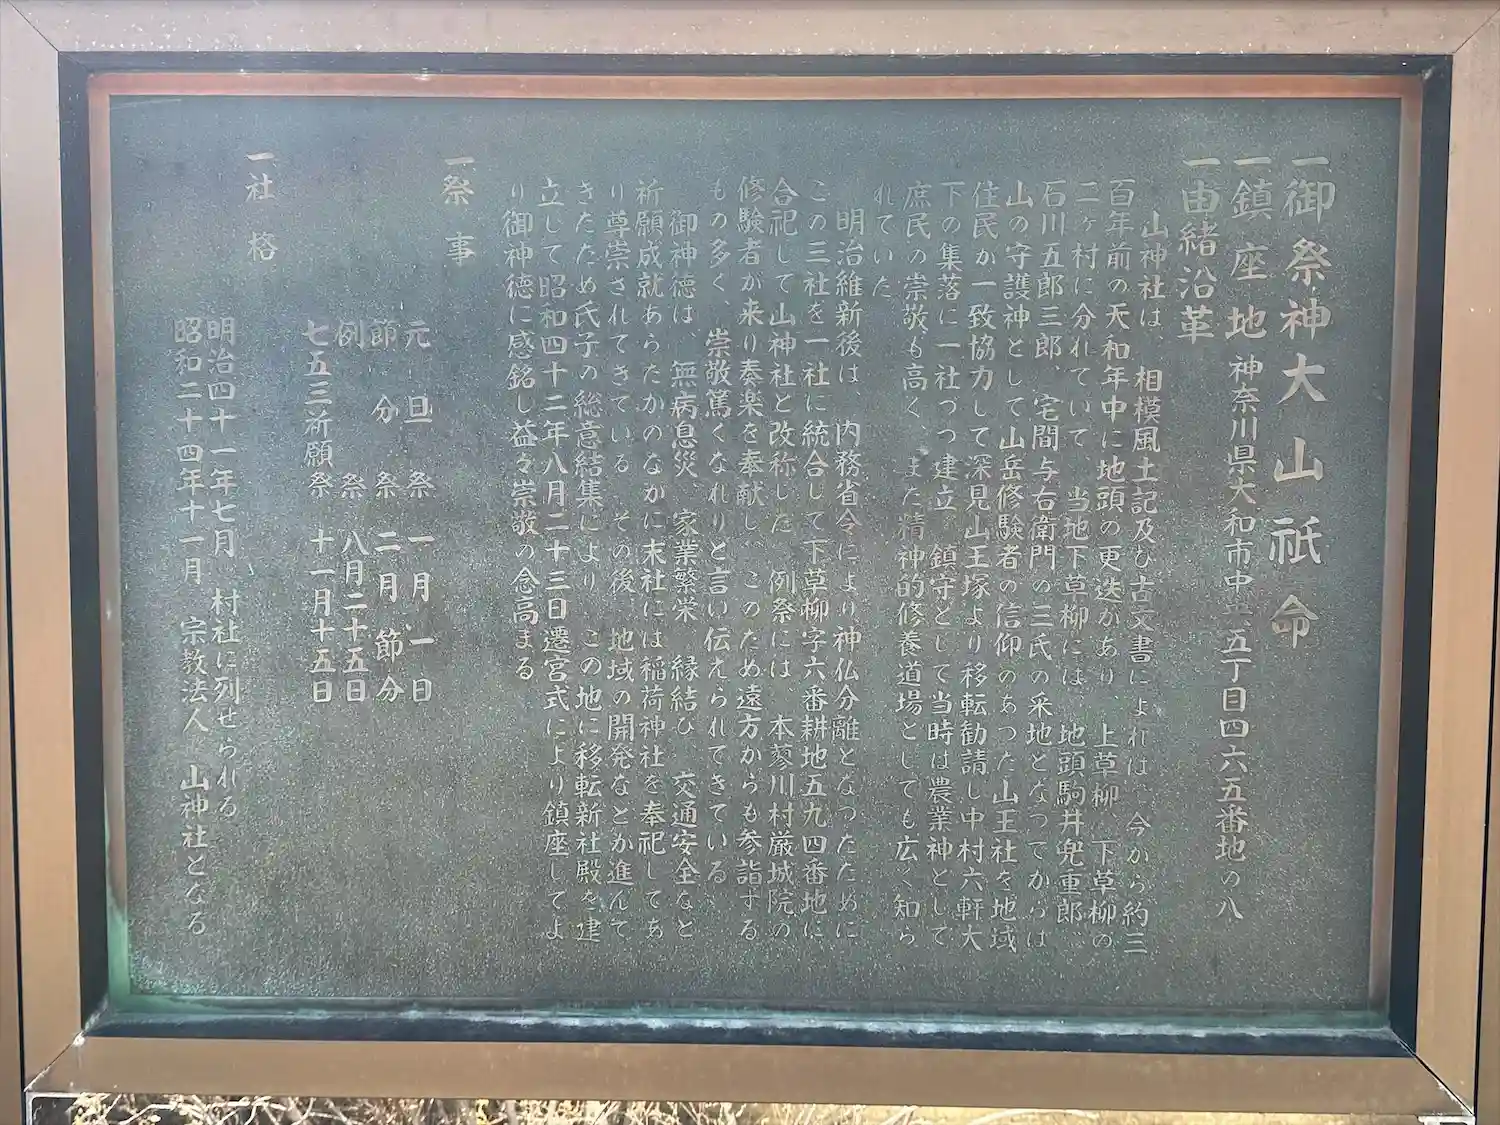 一御祭神大山祇命
一鎮座地 神奈川県大和市中央五丁目四六五番地の八
一由緒沿革
山神社は、相模風土記及び古文書によれば、今から約三
百年前の天和年中に地頭の更迭があり、上草柳、下草柳の
二ヶ村に分れていて、当地下草柳には、地頭駒井兜重郎、
石川五郎三郎、宅間与右衛門の三氏の采地となつてからは
山の守護神として山岳修験者の信仰のあつた山王社を地域
住民が一致協力して深見山王塚より移転勧請し中村六軒大
下の集落に一社づつ建立、鎮守として当時は農業神として
庶民の崇敬も高く、また精神的修養道場としても広く知ら
れていた。
明治維新後は、内務省令により神仏分離となつたために
この三社を一社に統合して下草柳字六番耕地五九四番地に
合祀して山神社と改称した。例祭には、本蓼川村厳城院の
修験者が来り奏楽を奉献し、このため遠方からも参詣する
もの多く、崇敬篤くなれりと言い伝えられてきている。
御神徳は、無病息災、家業繁栄、縁結び、交通安全など
祈願成就あらたかのなかに末社には稲荷神社を奉祀してあ
り尊崇されてきている。その後、地域の開発などが進んで
きたため氏子の総意結集により、この地に移転新社殿を建
立して昭和四十二年八月二十三日遷宮式により鎮座してよ
り御神徳に感銘し益々崇敬の念高まる。
一祭事
元旦祭 一月一日
節分祭 二月節分
例祭 八月二十五日
七五三祈願祭 十一月十五日
一社格
明治四十一年七月 村社に列せられる
昭和二十四年十一月 宗教法人 山神社となる